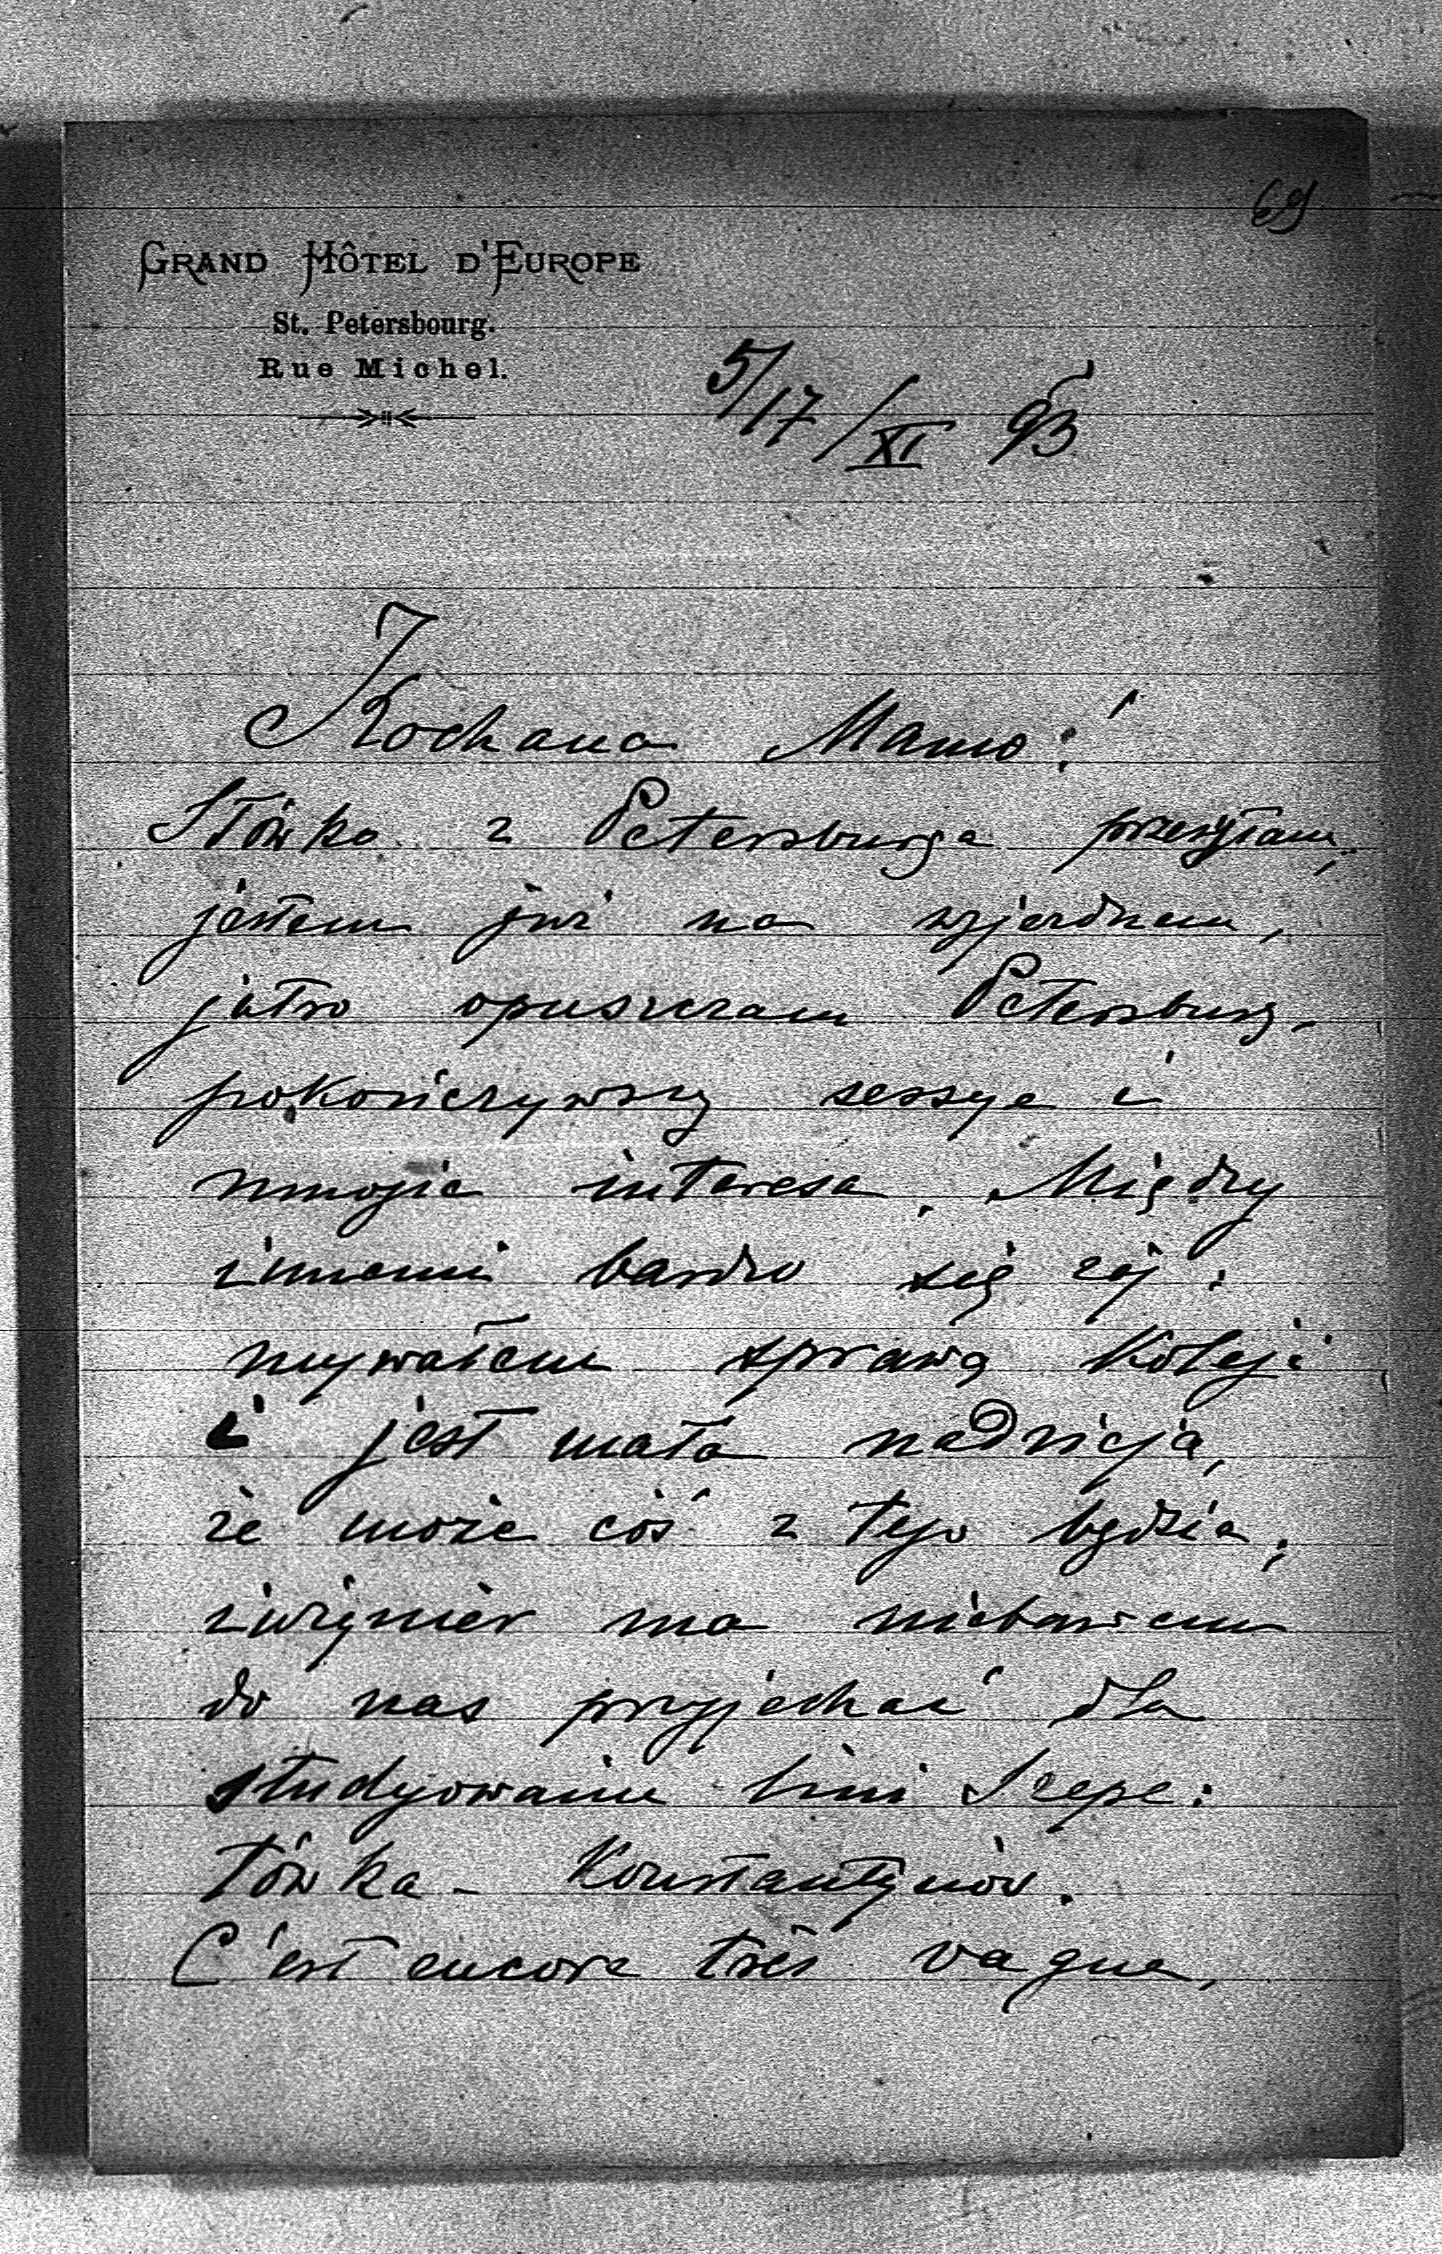 69
GRAND HÔTEL D'EUROPE
St. Petersbourg.
Rue Michel.
5/17/XI 93
Kochana Mamo!
Słówko z Petersburga przesyłam,
jestem już na wyjezdnem,
jutro opuszczam Petersburg,
pokończywszy sessye i
mnogie interesa. Między
innemi bardzo się zaj:
mywałem sprawą Koleji
i jest mała nadzieja,
że może cóś z tego będzie;
inżynier ma niebawem
do nas przyjechać dla
studyowania linii Szepe:
tówka - Konstantynów.
C'est encore très vague,